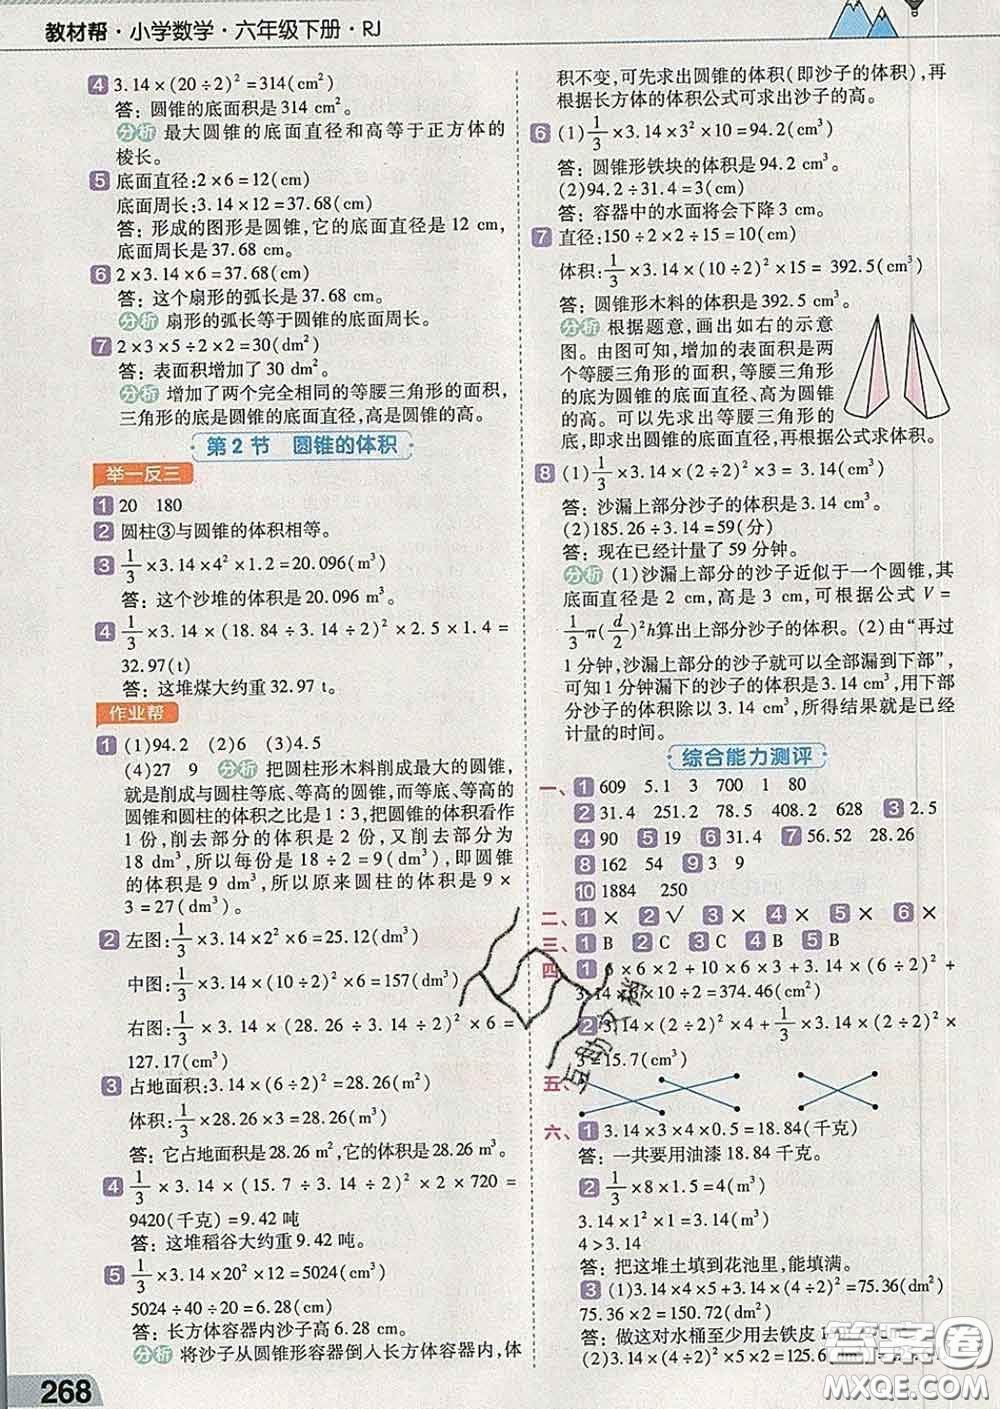 教材帮·小学数学·六年级下册·RJ
4 3.14×(20÷2)²=314(cm²)
答：圆锥的底面积是 314 cm²。
分析 最大圆锥的底面直径和高等于正方体的
棱长。
5 底面直径:2×6=12(cm)
底面周长:3.14×12=37.68(cm)
答：形成的图形是圆锥,它的底面直径是 12 cm,
底面周长是 37.68 cm。
6 2×3.14×6=37.68(cm)
答：这个扇形的弧长是 37.68 cm。
分析 扇形的弧长等于圆锥的底面周长。
7 2×3×5÷2×2=30(dm²)
答：表面积增加了 30 dm²。
分析 增加了两个完全相同的等腰三角形的面积,
三角形的底是圆锥的底面直径,高是圆锥的高。
第 2 节 圆锥的体积
举一反三
1 20 180
2 圆柱③与圆锥的体积相等。
3 1/3×3.14×4²×1.2=20.096(m³)
答：这个沙堆的体积是 20.096 m³。
4 1/3×3.14×(18.84÷3.14÷2)²×2.5×1.4=
32.97(t)
答：这堆煤大约重 32.97 t。
作业帮
1 (1)94.2 (2)6 (3)4.5
(4)27 9 分析 把圆柱形木料削成最大的圆锥,
就是削成与圆柱等底、等高的圆锥,而等底、等高的
圆锥和圆柱的体积之比是 1:3,把圆锥的体积看作
1 份,削去部分的体积是 2 份,又削去部分为
18 dm³,所以每份是 18÷2=9(dm³),即圆锥
的体积是 9 dm³,所以原来圆柱的体积是 9×
3=27(dm³)。
2 左图:1/3×3.14×2²×6=25.12(dm³)
中图:1/3×3.14×(10÷2)²×6=157(dm³)
右图:1/3×3.14×(28.26÷3.14÷2)²×6=
127.17(cm³)
3 占地面积:3.14×(6÷2)²=28.26(m²)
体积:1/3×28.26×3=28.26(m³)
答：它占地面积 28.26 m²,它的体积是 28.26 m³。
4 1/3×3.14×(15.7÷3.14÷2)²×2×720=
9420(千克)=9.42 吨
答：这堆稻谷大约重 9.42 吨。
5 1/3×3.14×20²×12=5024(cm³)
5024÷40÷20=6.28(cm)
答：长方体容器内沙子高 6.28 cm。
分析 将沙子从圆锥形容器倒入长方体容器内,体
268
积不变,可先求出圆锥的体积(即沙子的体积),再
根据长方体的体积公式可求出沙子的高。
6 (1)1/3×3.14×3²×10=94.2(cm³)
答：圆锥形铁块的体积是 94.2 cm³。
(2)94.2÷31.4=3(cm)
答：容器中的水面将会下降 3 cm。
7 直径:150÷2×2÷15=10(cm)
体积:1/3×3.14×(10÷2)²×15=392.5(cm³)
答：圆锥形木料的体积是 392.5 cm³。
分析 根据题意,画出如右的示意
图。由图可知,增加的表面积是两
个等腰三角形的面积,等腰三角形
的底为圆锥的底面直径、高为圆锥
的高。可以先求出等腰三角形的
底,即求出圆锥的底面直径,再根据公式求体积。
8 (1)1/3×3.14×(2÷2)²×3=3.14(cm³)
答：沙漏上部分沙子的体积是 3.14 cm³。
(2)185.26÷3.14=59(分)
答：现在已经计量了 59 分钟。
分析 (1)沙漏上部分的沙子近似于一个圆锥,其
底面直径是 2 cm,高是 3 cm,可根据公式 V=
1/3π(d/2)²h算出上部分沙子的体积。(2)由“再过
1 分钟,沙漏上部分的沙子就可以全部漏到下部”,
可知 1 分钟漏下的沙子的体积是 3.14 cm³,用下部
分沙子的体积除以 3.14 cm³,所得结果就是已经
计量的时间。
综合能力测评
一、1 609 5.1 3 700 1 80
2 31.4 251.2 78.5 408.2 628 3 2.5
4 90 5 19 6 31.4 7 56.52 28.26
8 162 54 9 3 9
10 1884 250
二、1 × 2 √ 3 × 4 × 5 × 6 ×
三、1 B 2 C 3 C 4 B 5 B
四、1 6×6×2+10×6×3+3.14×(6÷2)²+
3.14×6×10÷2=374.46(cm²)
2 3.14×(2÷2)²×4+1/3×3.14×(2÷2)²×
3=15.7(cm³)
五、
六、1 3.14×3×4×0.5=18.84(千克)
答：一共要用油漆 18.84 千克。
2 1/3×8×1.5=4(m³)
3.14×1²×1=3.14(m³)
4>3.14
答：把这堆土填到花池里,能填满。
3 (1)3.14×4×5+3.14×(4÷2)²=75.36(dm²)
75.36×2=150.72(dm²)
答：做这对水桶至少用去铁皮
(2)3.14×(4÷2)²×5×2=125.6
互助文档
答案圈
MXQE.COM